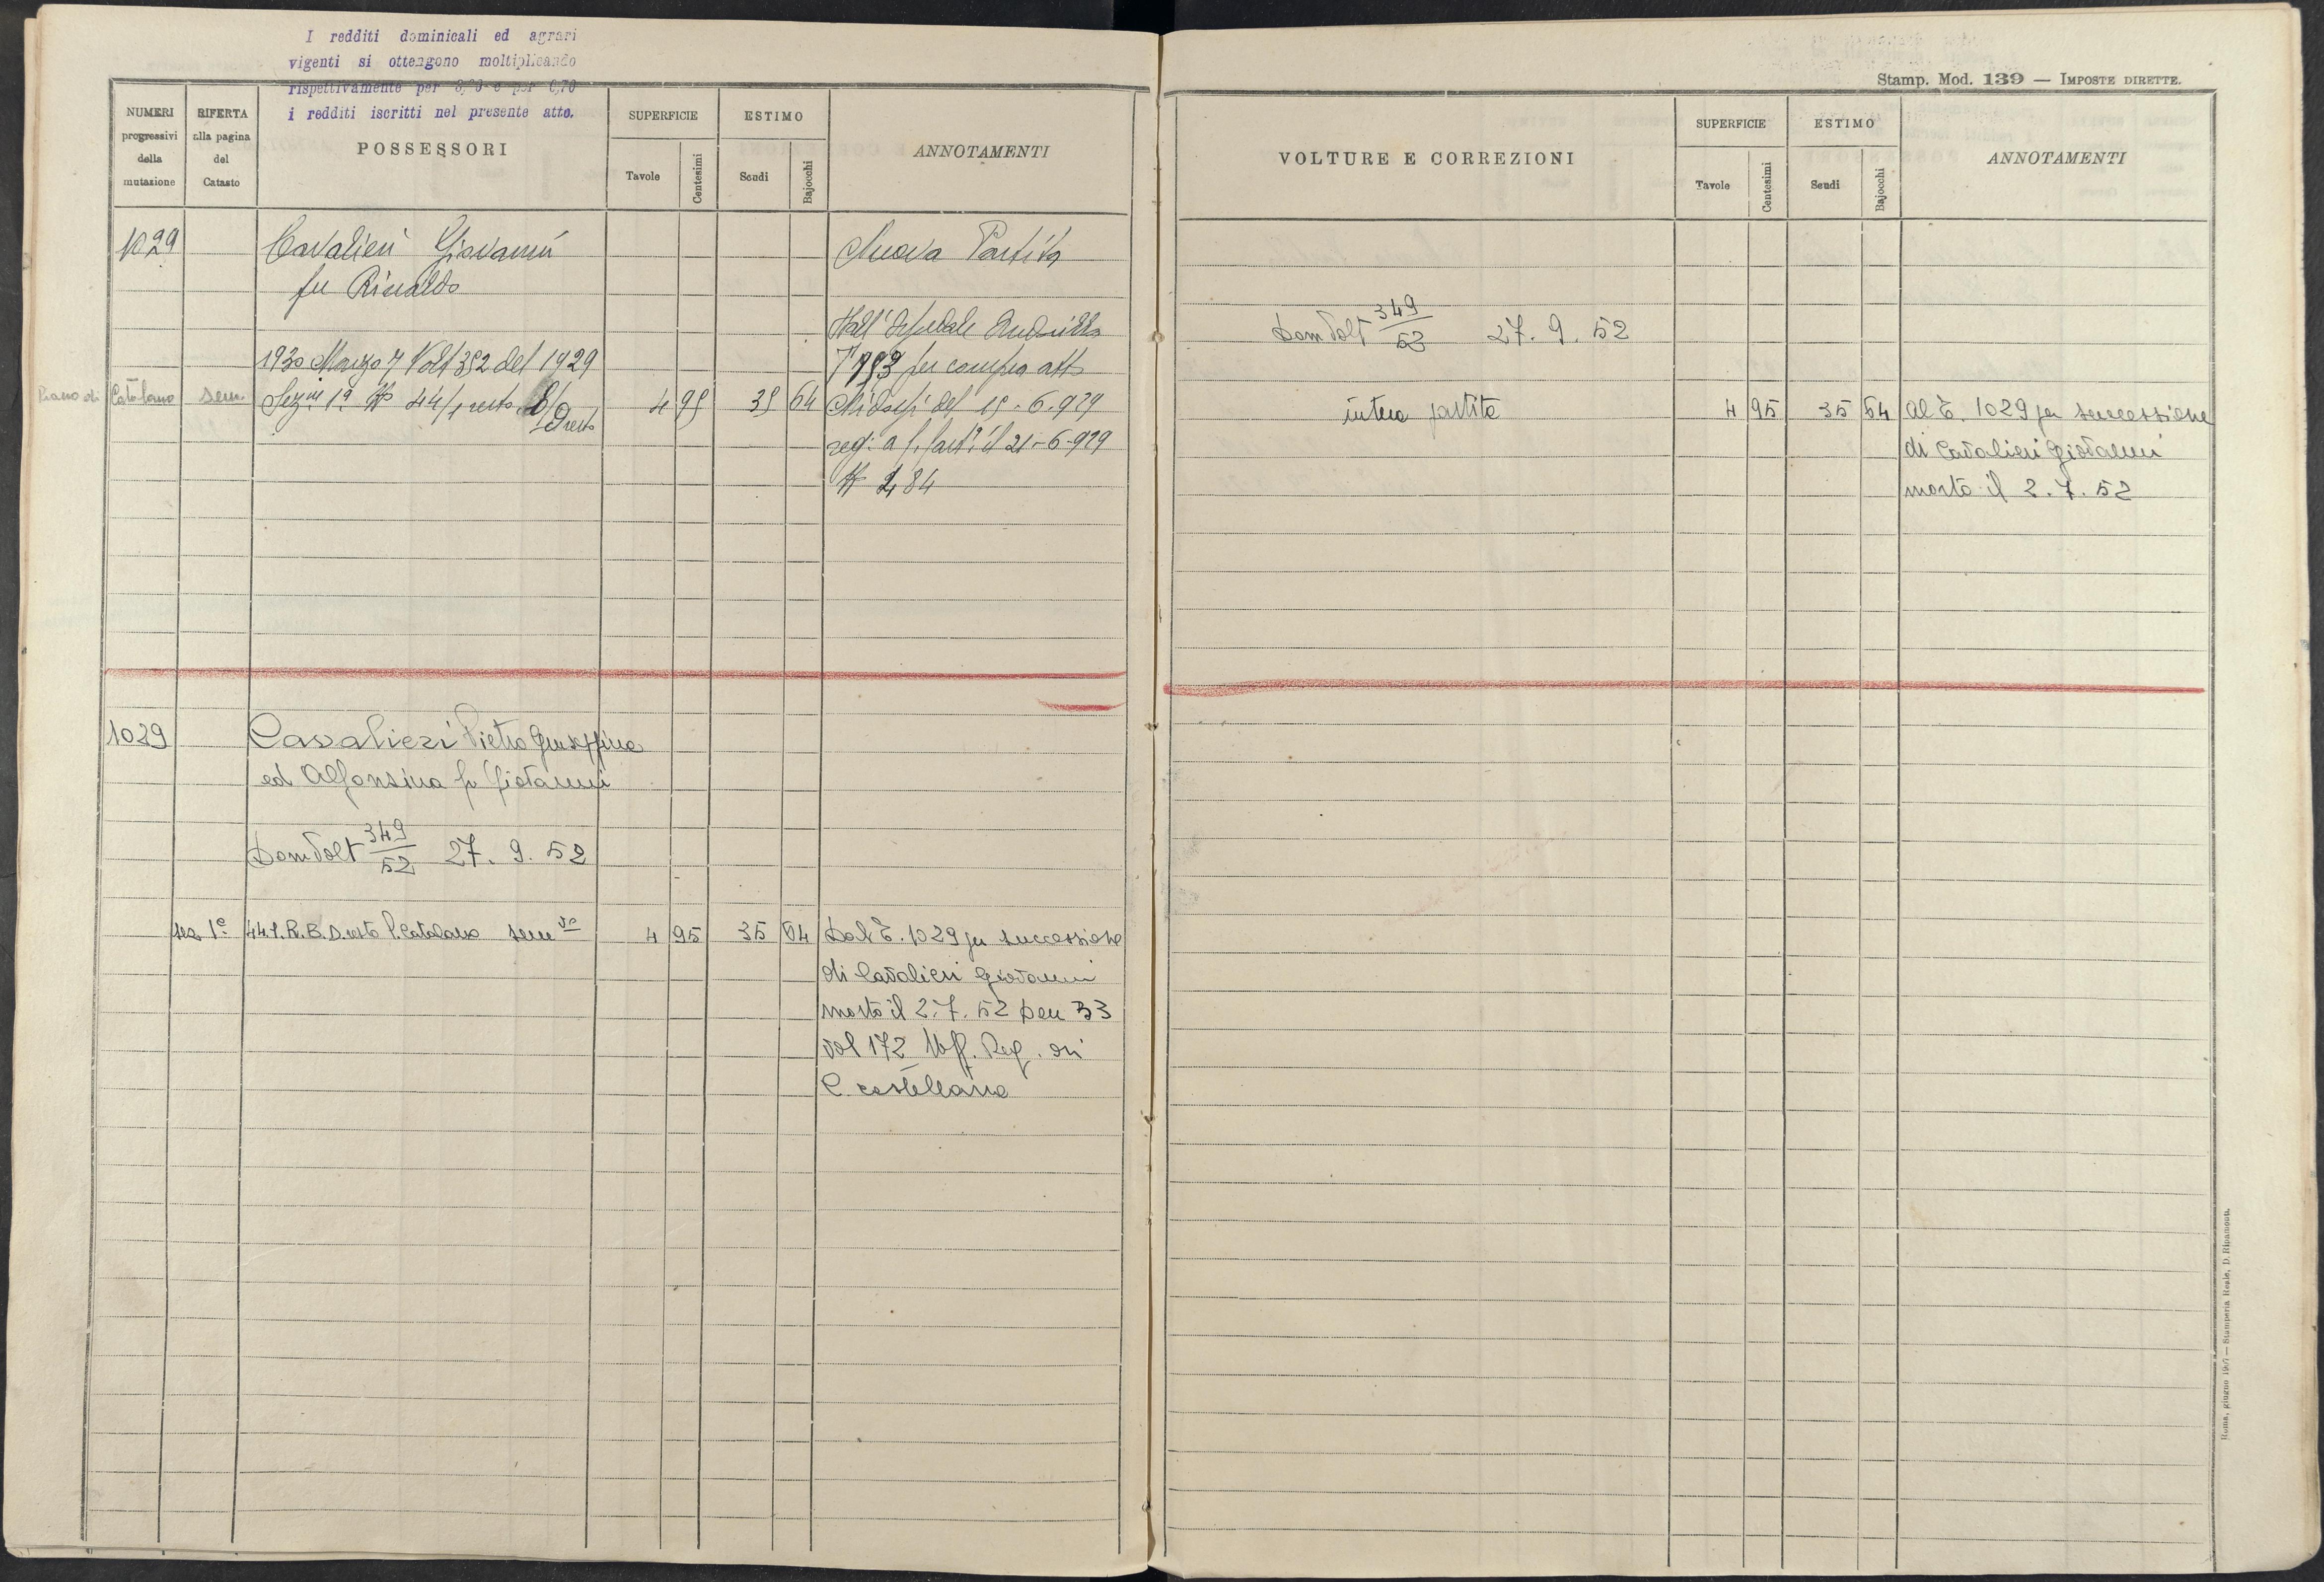 I redditi dominicali ed agrari
vigenti si ottengono moltiplicando
rispettivamente per e per 0,70
i redditi iscritti nel presente atto.
NUMERI progressivi della mutazione
RIFERTA alla pagina del Catasto
POSSESSORI
SUPERFICIE
Tavole
Centesimi
ESTIMO
Scudi
Bajocchi
ANNOTAMENTI
1029 Cavalieri Giovanni Nuova Partita
fu Rinaldo
Dall'
1930 Marzo 7 Volt 352 del 1929 per compra atto
Piano di Catalano sem. Sez 1ª N 44/1 resto B/D resto 4 95 35 64 del 15-6-929
reg: a il 21-6-929
N 284
1029 Cavalieri Pietro Giuseppina
ed Alfonsina fu Giovanni
Dom Volt 349/52 27. 9. 52
sez 1ª 44.1.R.B.D. resto P. Catalano sem vo 4 95 35 64 Dal T. 1029 per successione
di Cavalieri Giovanni
morto il 2. 7. 52 Den 33
vol 172 Uff. Reg. di
C. castellana
Stamp. Mod. 139 — IMPOSTE DIRETTE.
VOLTURE E CORREZIONI
SUPERFICIE
Tavole
Centesimi
ESTIMO
Scudi
Bajocchi
ANNOTAMENTI
Dom Volt 349/52 27. 9. 52
intera partita 4 95 35 64 Al T. 1029 per successione
di Cavalieri Giovanni
morto il 2. 7. 52
— Stamperia Reale, D. Ripamonti.